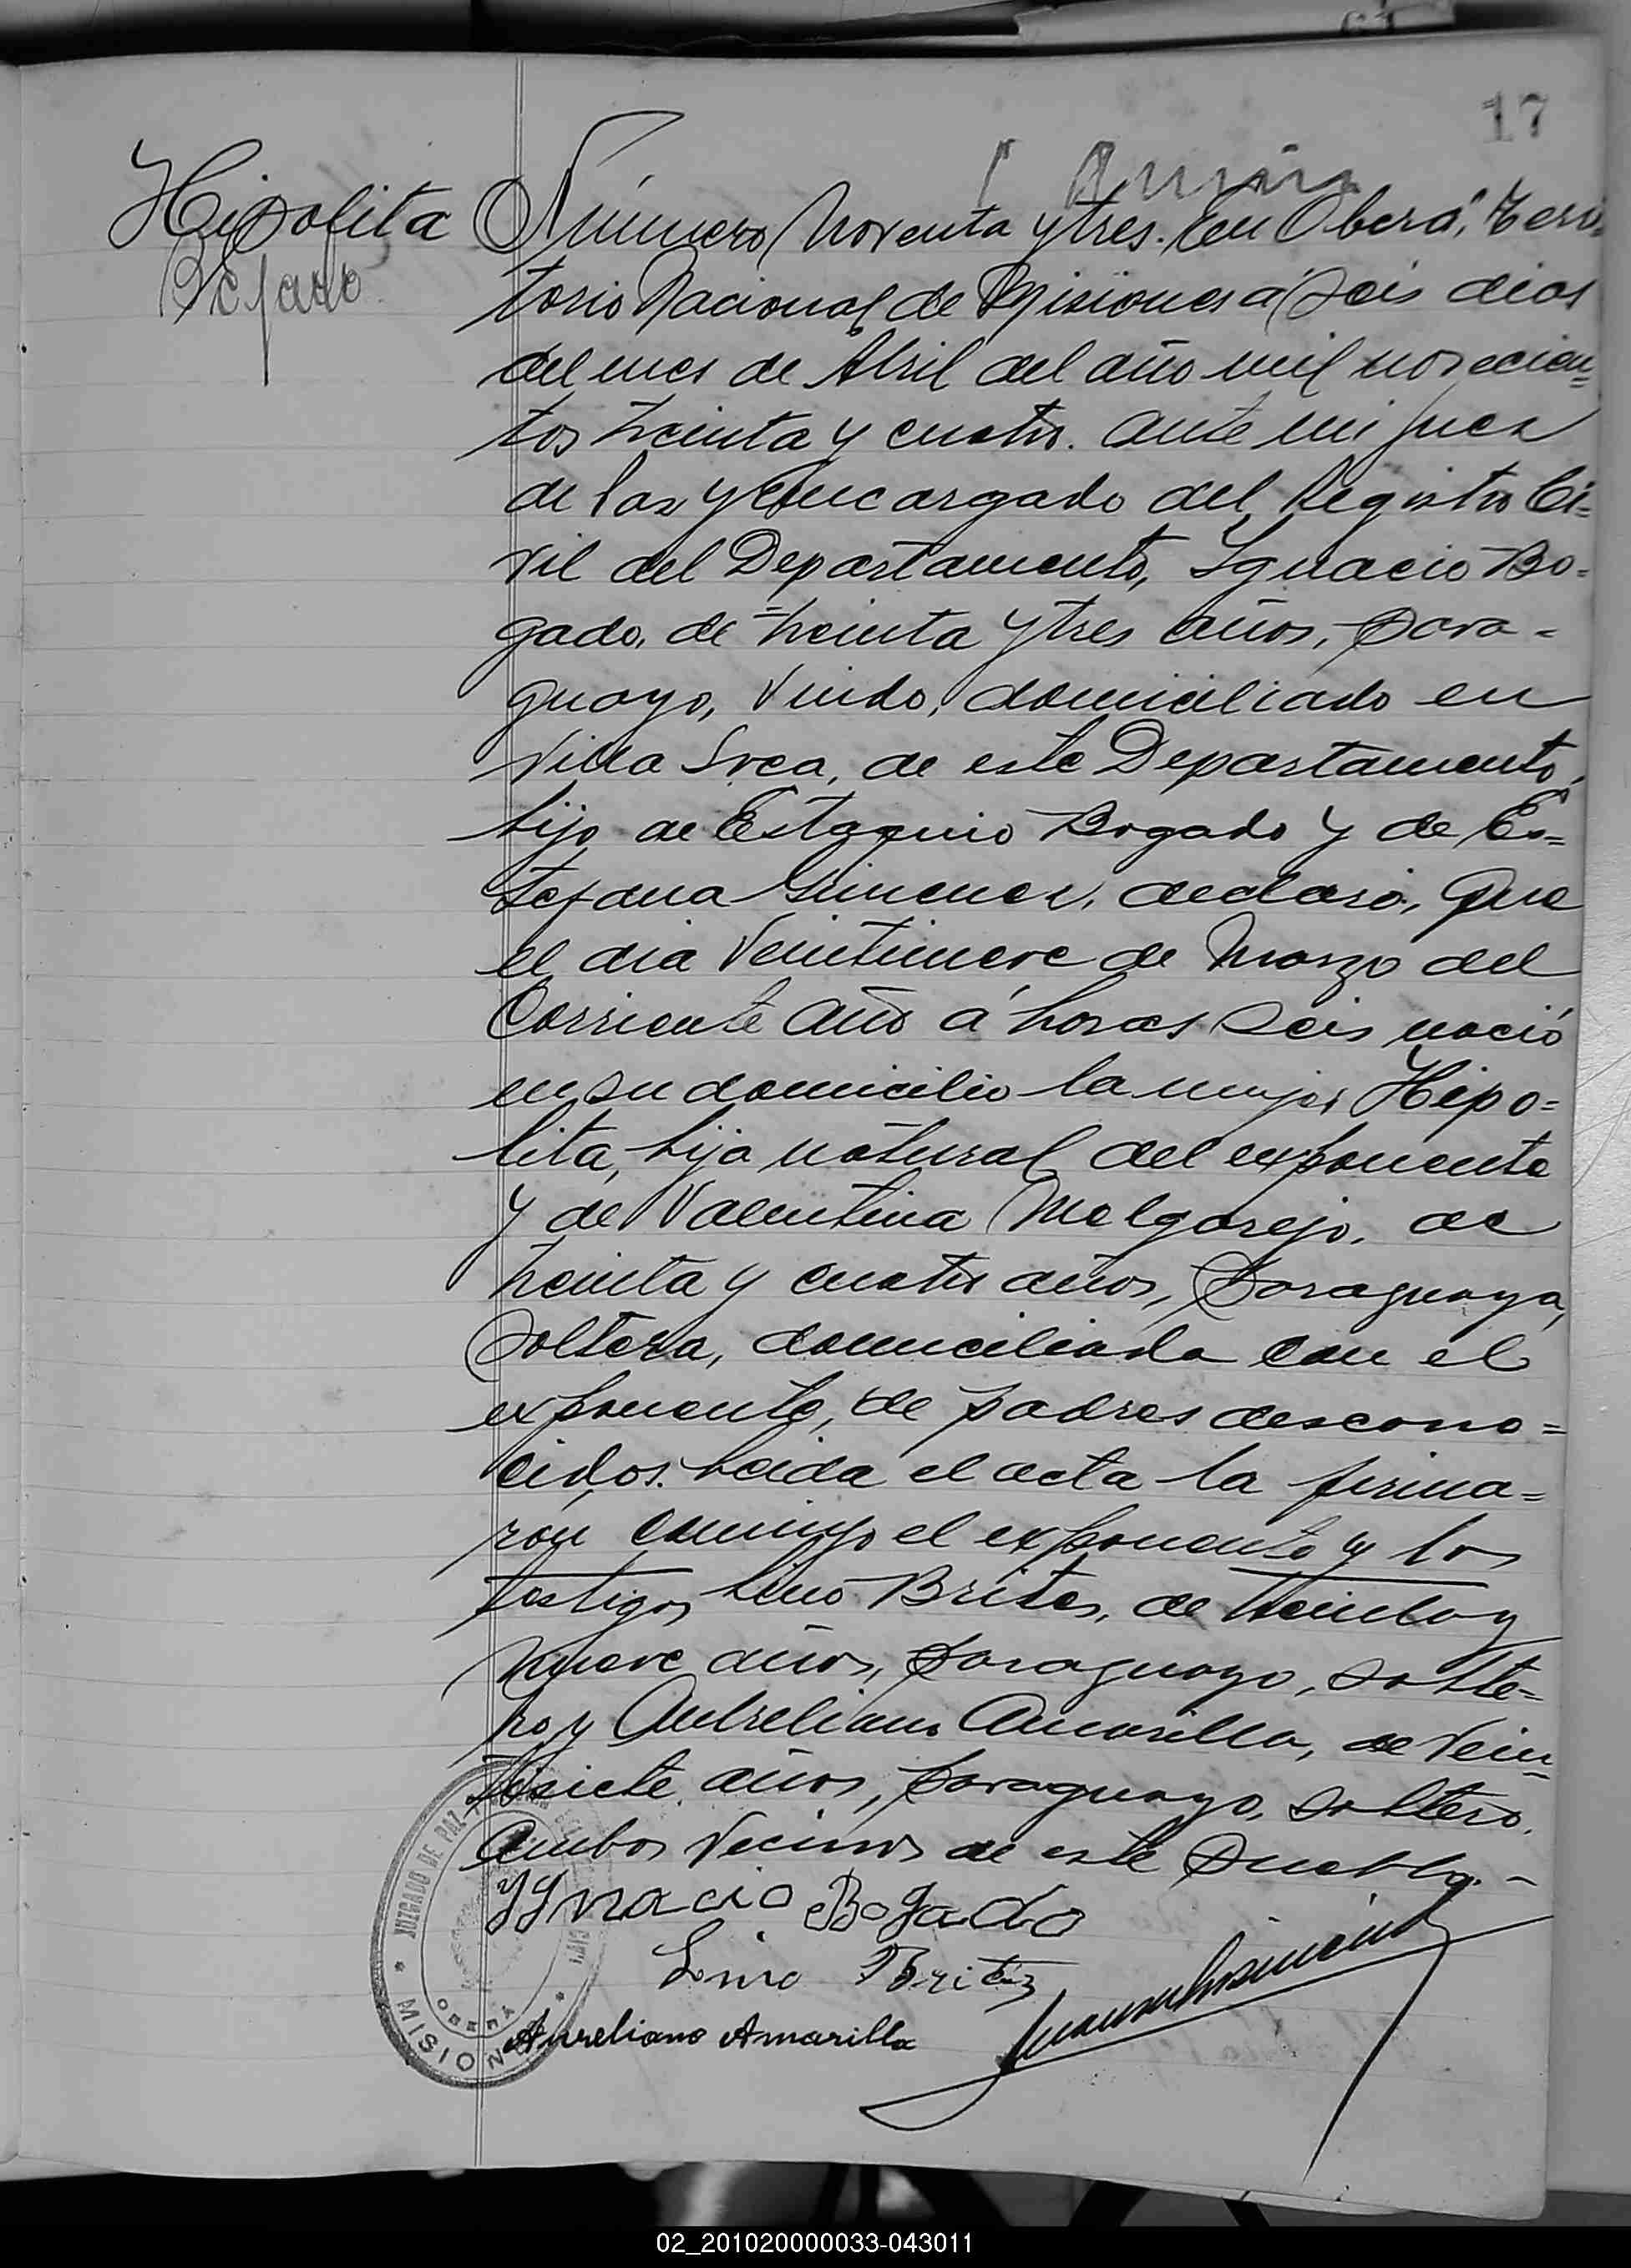 17
Hipolita
Número Noventa y tres. En Oberá, Terri-
torio Nacional de Misiones a seis dias
del mes de Abril del año mil novecien=
tos treinta y cuatro. ante mi Juez
de Paz y Encargado del Registro Ci=
vil del Departamento, Ignacio Bo=
gado, de treinta y tres años, para=
guayo, viudo, domiciliado en
Villa Svea, de este Departamento,
hijo de Estaquio Bogado y de Es=
tefana Gimenez, declaró, Que
el dia Veintinueve de Marzo del
Corriente año á horas seis nació
en su domicilio la mujer Hipo=
lita, hija natural del exponente
y de Valentina Melgarejo, de
treinta y cuatro años, paraguaya,
soltera, domiciliada con el
exponente, de padres descono=
cidos. Leida el acta la firma=
rón conmigo el exponente y los
testigos Lino Brites, de treinta y
nueve años, paraguayo, solte=
ro y Aureliano Amarilla, de Vein=
tisiete años, paraguayo, soltero.
Ambos vecinos de este pueblo.-
Ygnacio Bogado
Lino Britez
Aureliano Amarilla
JUZGADO DE PAZ
OBERÁ
MISIONES
02_201020000033-043011